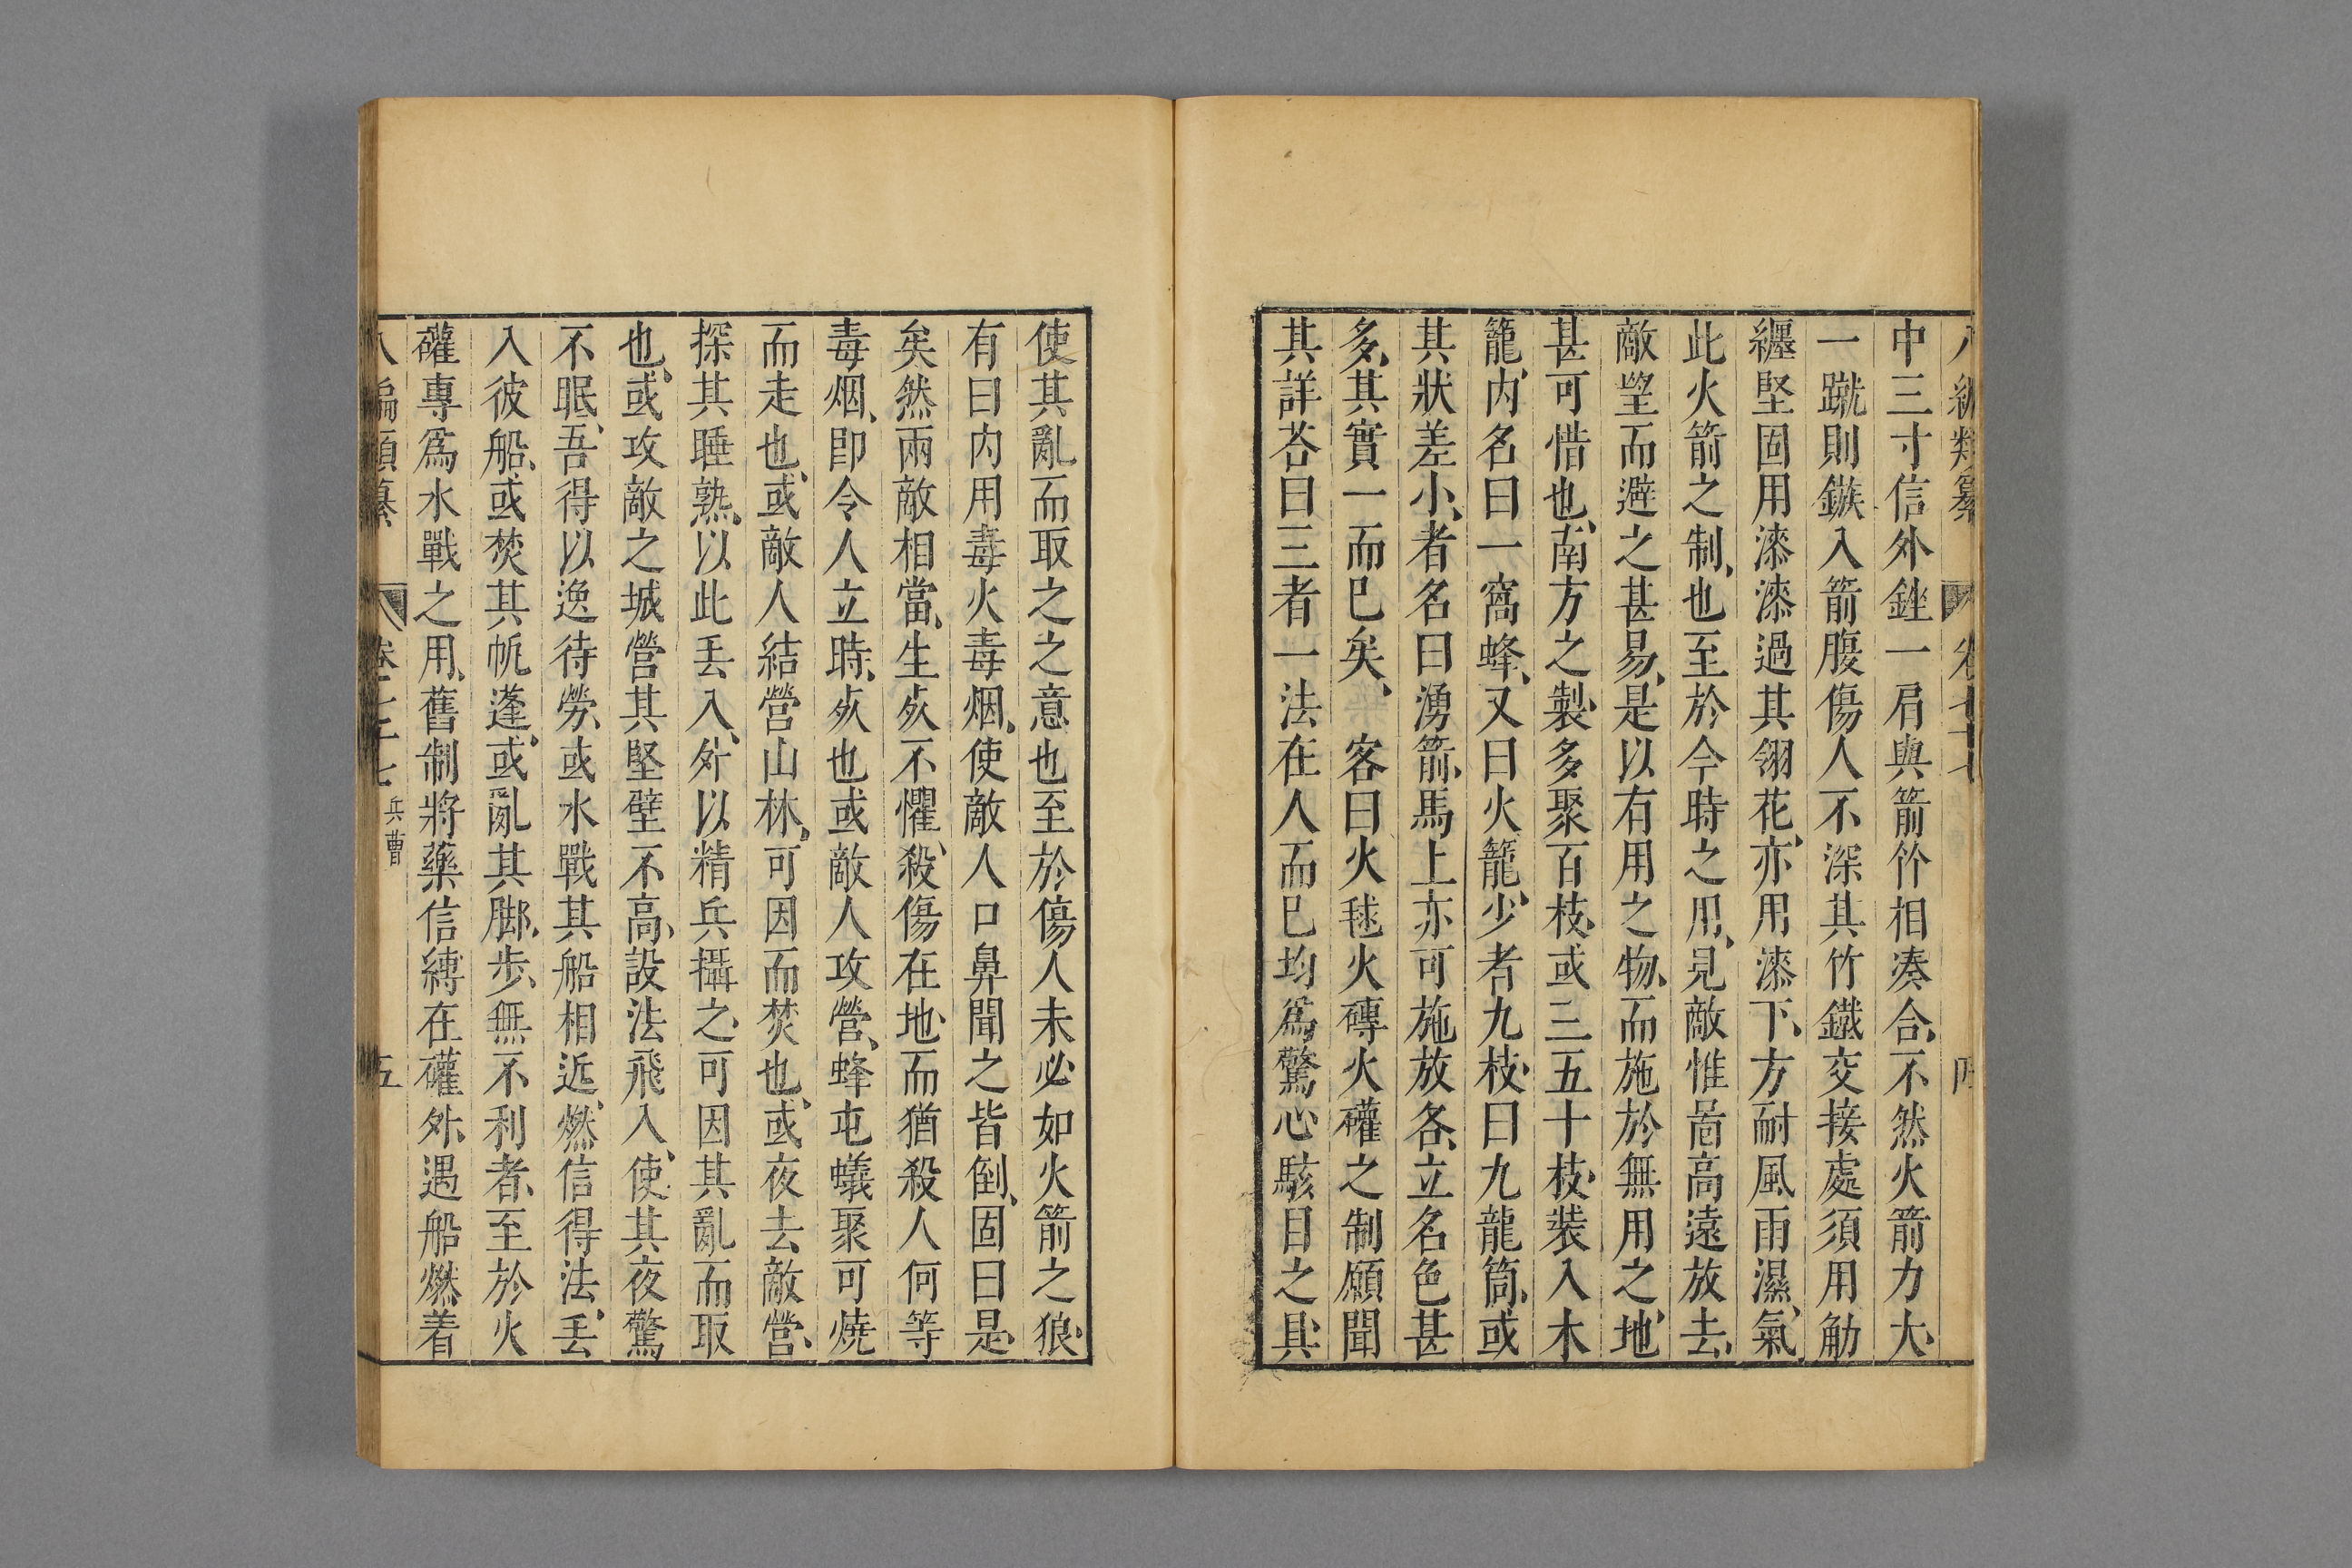 八編類纂 卷七十七
中三寸信外銼一肩與箭竹相凑合不然火箭力大
一蹴則鏃入箭腹傷人不深其竹鐵交接處須用觔
纏堅固用漆漆過其翎花亦用漆下方耐風雨濕氣
此火箭之制也至於今時之用見敵惟啚高遠放去
敵望而避之甚易是以有用之物而施於無用之地
甚可惜也南方之製多聚百枝或三五十枝裝入木
籠内名曰一窩蜂又曰火籠少者九枝曰九龍筒或
其狀差小者名曰湧箭馬上亦可施放各立名色甚
多其實一而巳矣 客曰火毬火磚火礶之制願聞
其詳荅曰三者一法在人而巳均爲驚心駭目之具
使其亂而取之之意也至於傷人未必如火箭之狼
有曰内用毒火毒烟使敵人口鼻聞之皆倒固曰是
矣然兩敵相當生死不懼殺傷在地而猶殺人何等
毒烟即令人立時死也或敵人攻營蜂屯蟻聚可燒
而走也或敵人結營山林可因而焚也或夜去敵營
探其睡熟以此丢入外以精兵攝之可因其亂而取
也或攻敵之城營其堅壁不高設法飛入使其夜驚
不眠吾得以逸待勞或水戰其船相近燃信得法丢
入彼船或焚其帆蓬或亂其脚步無不利者至於火
礶專爲水戰之用舊制將藥信縛在礶外遇船燃着
八編類纂 卷七十七 兵曹 五